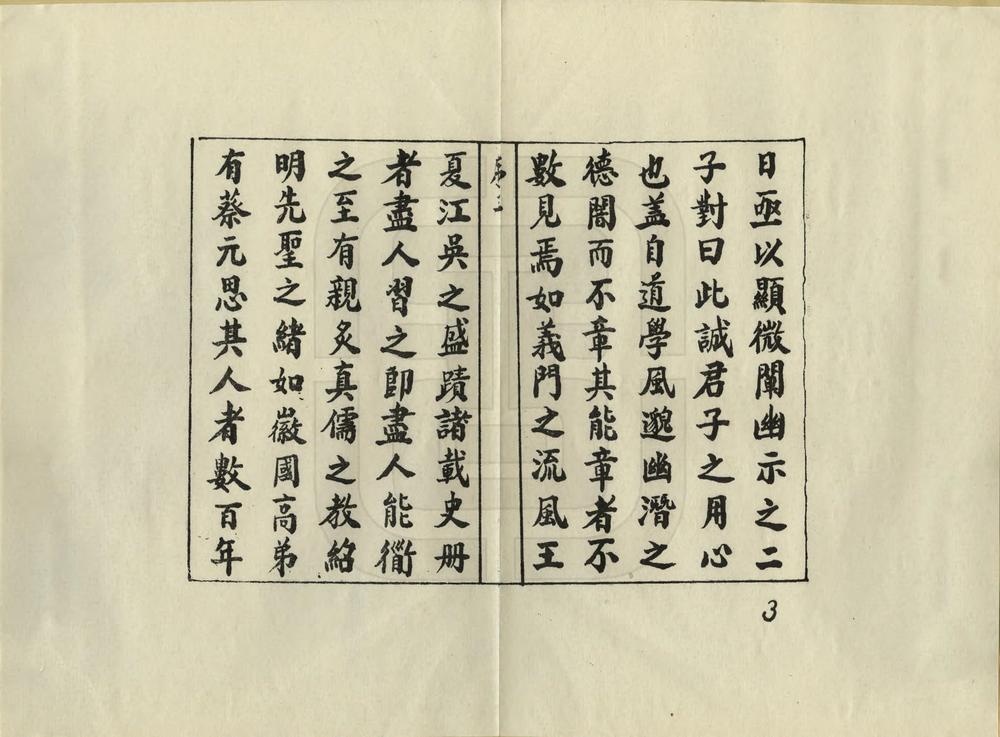 日亟以顯微闡幽示之二
子對曰此誠君子之用心
也蓋自道學風邈幽潛之
德闇而不章其能章者不
數見焉如義門之流風王
序三
夏江吳之盛蹟諸載史册
者盡人習之即盡人能衜
之至有親炙真儒之教紹
明先聖之緒如徽國高弟
有蔡元思其人者數百年
3